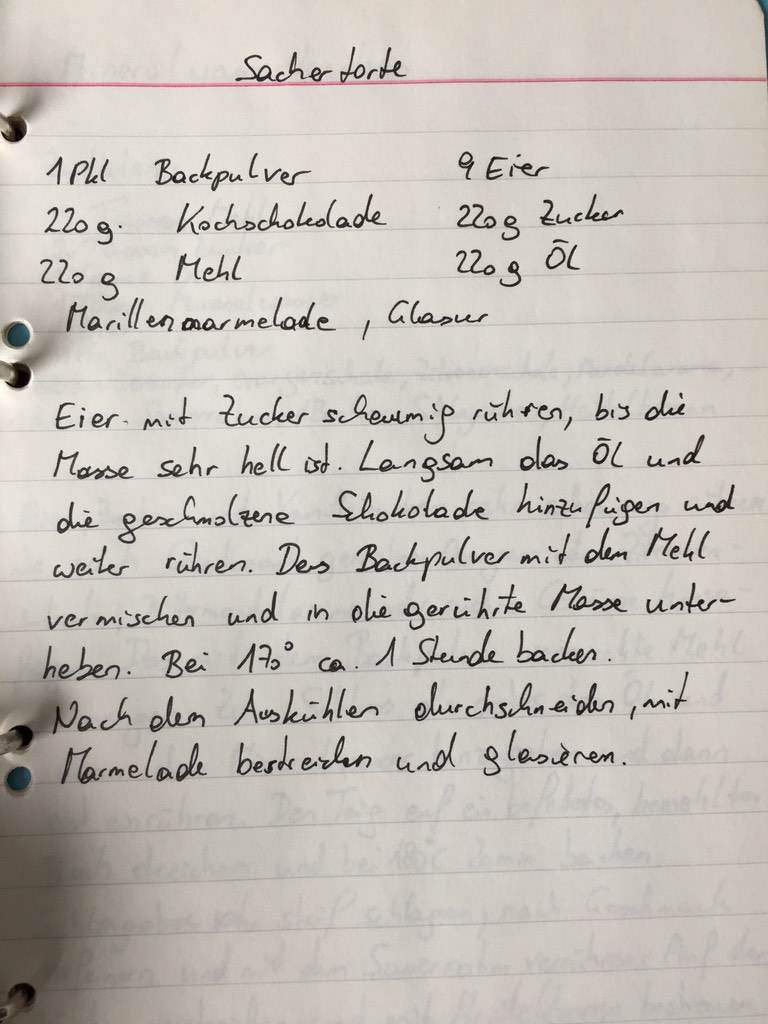 Sachertorte
1 Pkl Backpulver 9 Eier
220 g. Kochschokolade 220 g Zucker
220 g Mehl 220 g Öl
Marillenmarmelade, Glasur
Eier mit Zucker schaumig rühren, bis die
Masse sehr hell ist. Langsam das Öl und
die geschmolzene Schokolade hinzufügen und
weiter rühren. Das Backpulver mit dem Mehl
vermischen und in die gerührte Masse unter-
heben. Bei 170° ca. 1 Stunde backen.
Nach dem Auskühlen durchschneiden, mit
Marmelade bestreichen und glasieren.